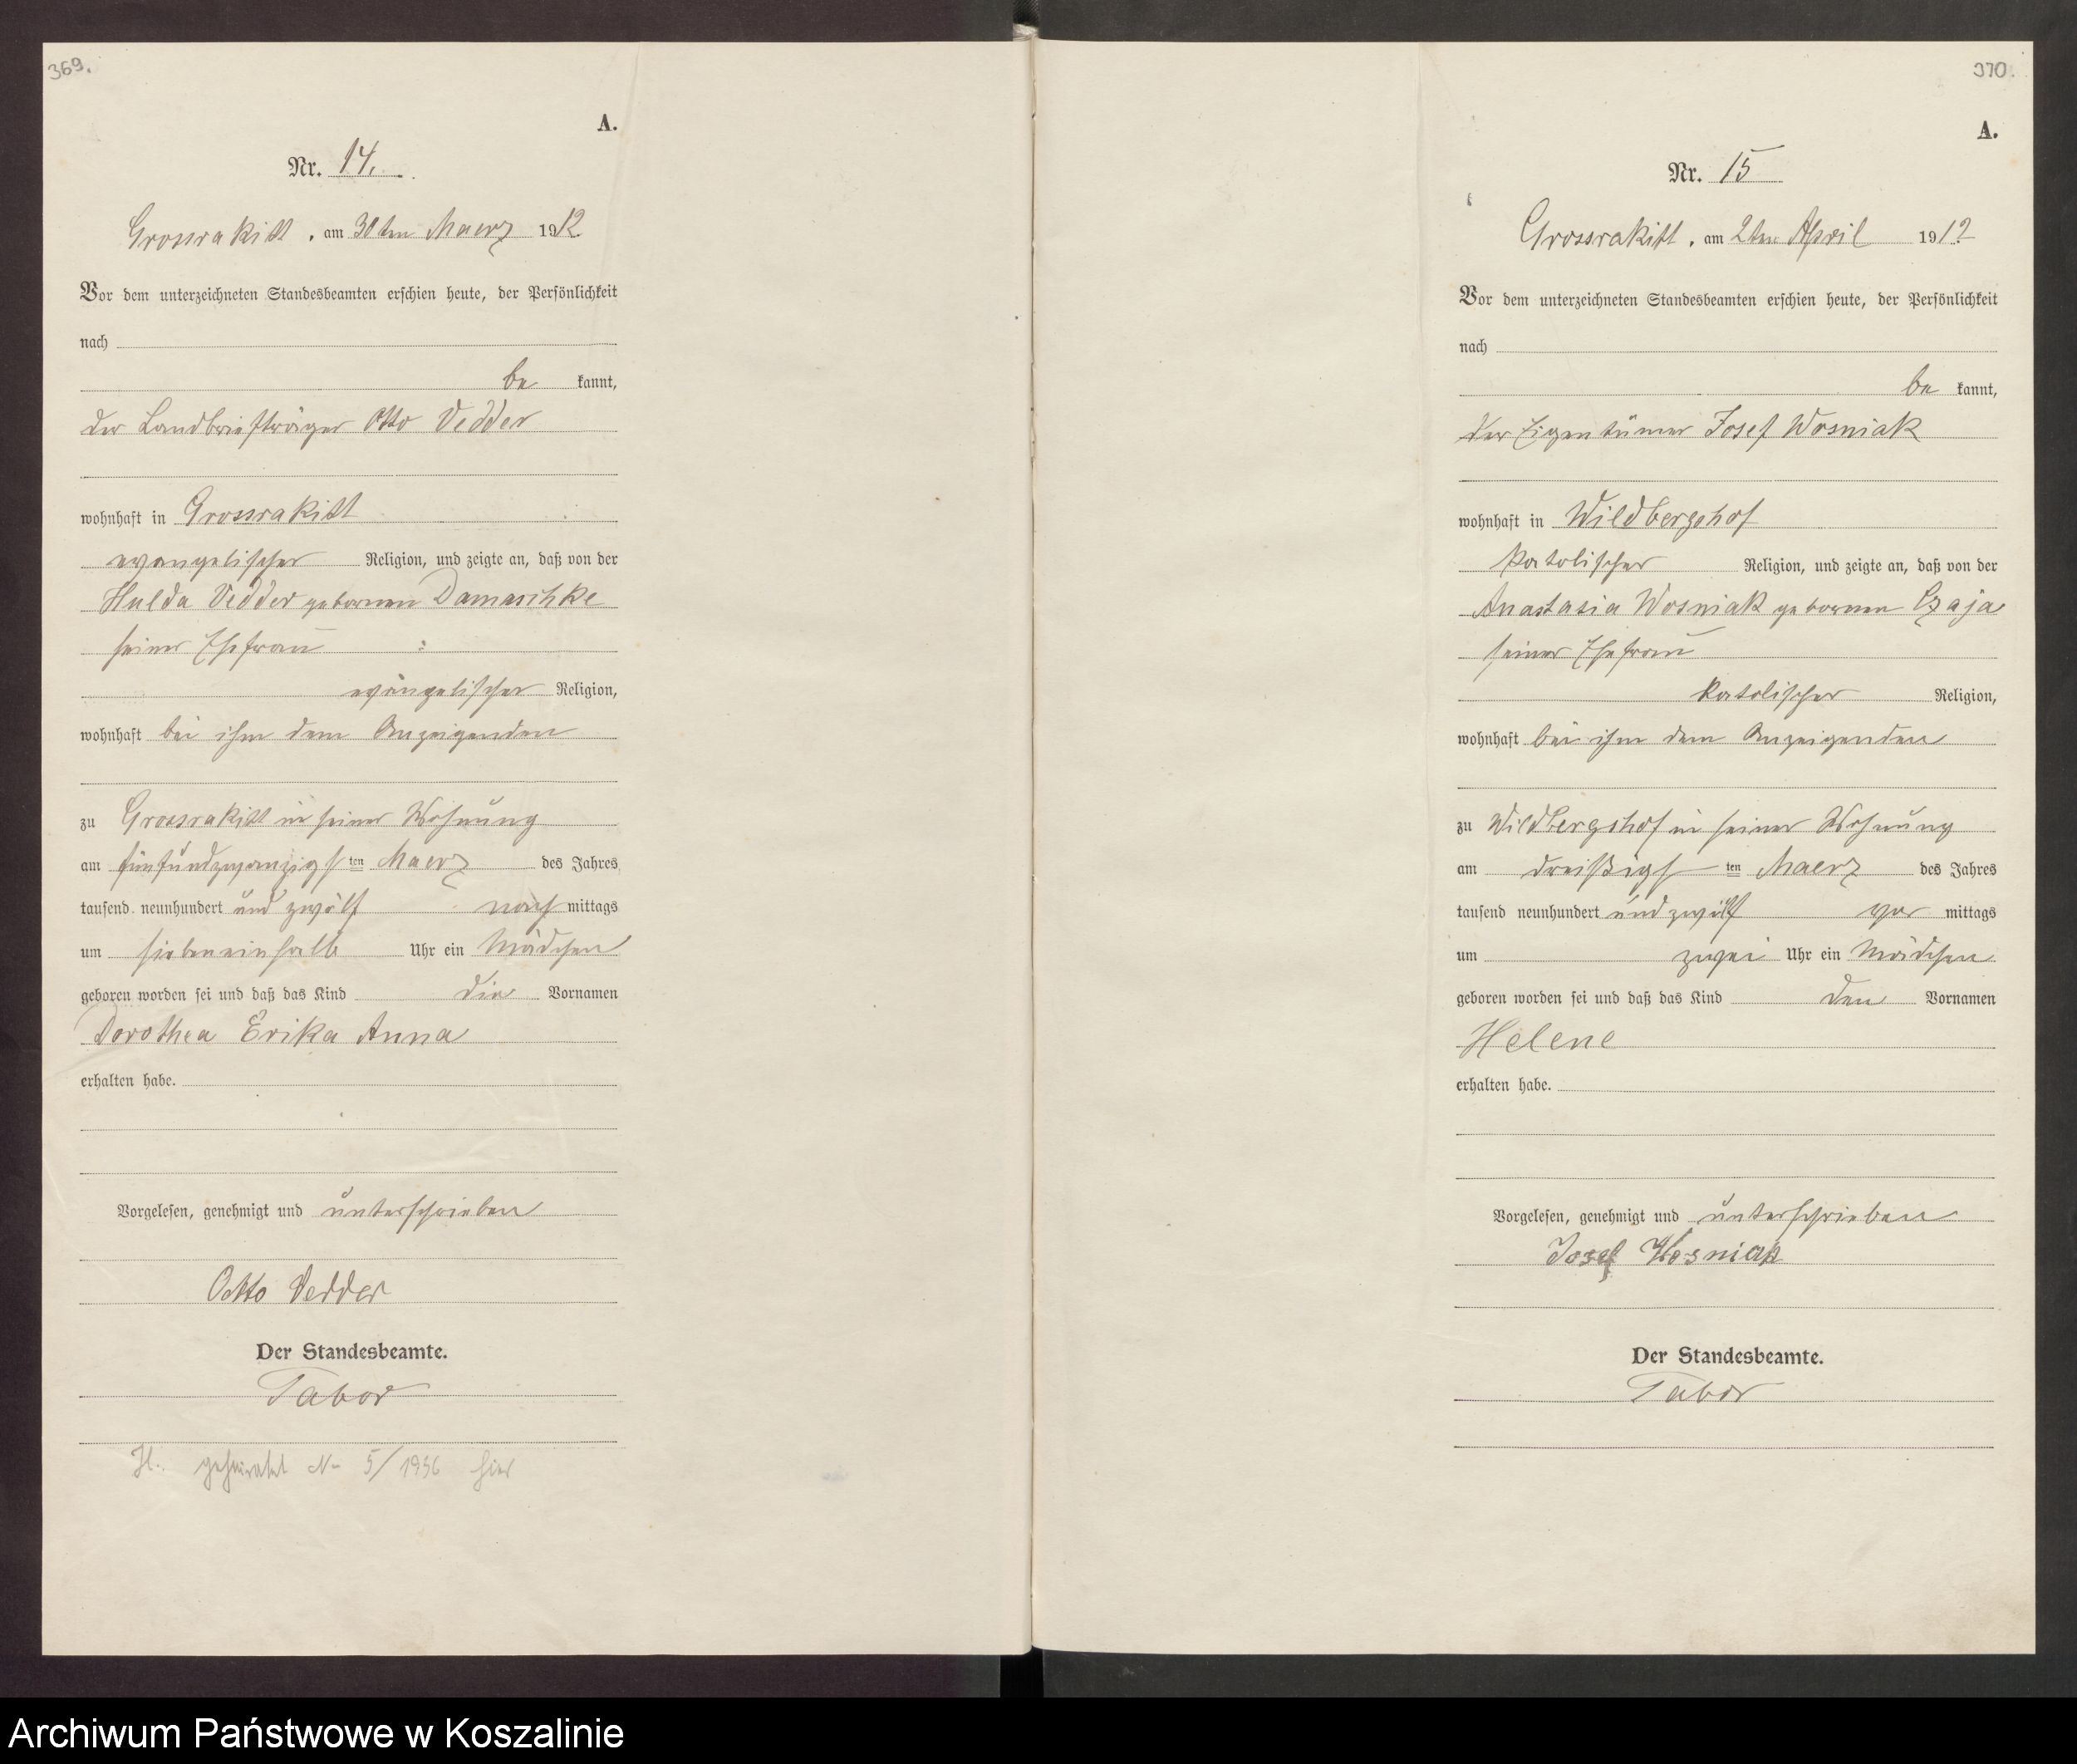 369.
A.
Nr. 14.
Grossrakitt, am 30ten Maerz 1912
Vor dem unterzeichneten Standesbeamten erschien heute, der Persönlichkeit
nach
be kannt,
der Landbriefträger Otto Vedder
wohnhaft in Grossrakitt
evangelischer Religion, und zeigte an, daß von der
Hulda Vedder geborenen Damaschke
seiner Ehefrau
evangelischer Religion,
wohnhaft bei ihm dem Anzeigenden
zu Grossrakitt in seiner Wohnung
am fünfundzwanzigsten Maerz des Jahres
tausend neunhundert und zwölf nachmittags
um siebeneinhalb Uhr ein Mädchen
geboren worden sei und daß das Kind die Vornamen
Dorothea Erika Anna
erhalten habe.
Vorgelesen, genehmigt und unterschrieben
Otto Vedder
Der Standesbeamte.
Tabor
geheiratet No 5/1936 hier
370.
A.
Nr. 15
Grossrakitt, am 2ten April 1912
Vor dem unterzeichneten Standesbeamten erschien heute, der Persönlichkeit
nach
be kannt,
der Eigentümer Josef Wosniak
wohnhaft in Wildbergshof
katolischer Religion, und zeigte an, daß von der
Anastasia Wosniak geborenen Czaja
seiner Ehefrau
katolischer Religion,
wohnhaft bei ihm dem Anzeigenden
zu Wildbergshof in seiner Wohnung
am dreißigsten Maerz des Jahres
tausend neunhundert und zwölf vor mittags
um zwei Uhr ein Mädchen
geboren worden sei und daß das Kind den Vornamen
Helene
erhalten habe.
Vorgelesen, genehmigt und unterschrieben
Josef Wosniak
Der Standesbeamte.
Tabor
Archiwum Państwowe w Koszalinie